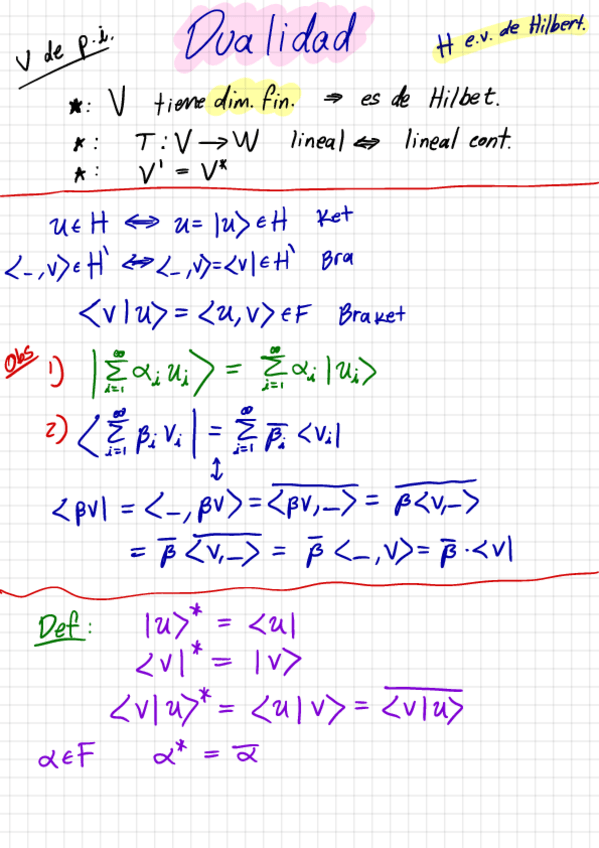 V de p.i. Dualidad H e.v. de Hilbert.
*: V tiene dim. fin. ⇒ es de Hilbet.
*: T: V → W lineal ⇔ lineal cont.
*: V' = V*
u ∈ H ⇔ u = |u> ∈ H Ket
<_,v> ∈ H' ⇔ <_,v> = <v| ∈ H' Bra
<v|u> = <u,v> ∈ F Braket
Obs 1) |∑_{i=1}^{∞} α_i u_i> = ∑_{i=1}^{∞} α_i |u_i>
2) <∑_{i=1}^{∞} β_i v_i| = ∑_{i=1}^{∞} β̅_i <v_i|
↕
<βv| = <_, βv> = \overline{<βv,_>} = \overline{β<v,_>}
= β̅ \overline{<v,_>} = β̅ <_,v> = β̅·<v|
Def: |u>* = <u|
<v|* = |v>
<v|u>* = <u|v> = \overline{<v|u>}
α ∈ F α* = α̅